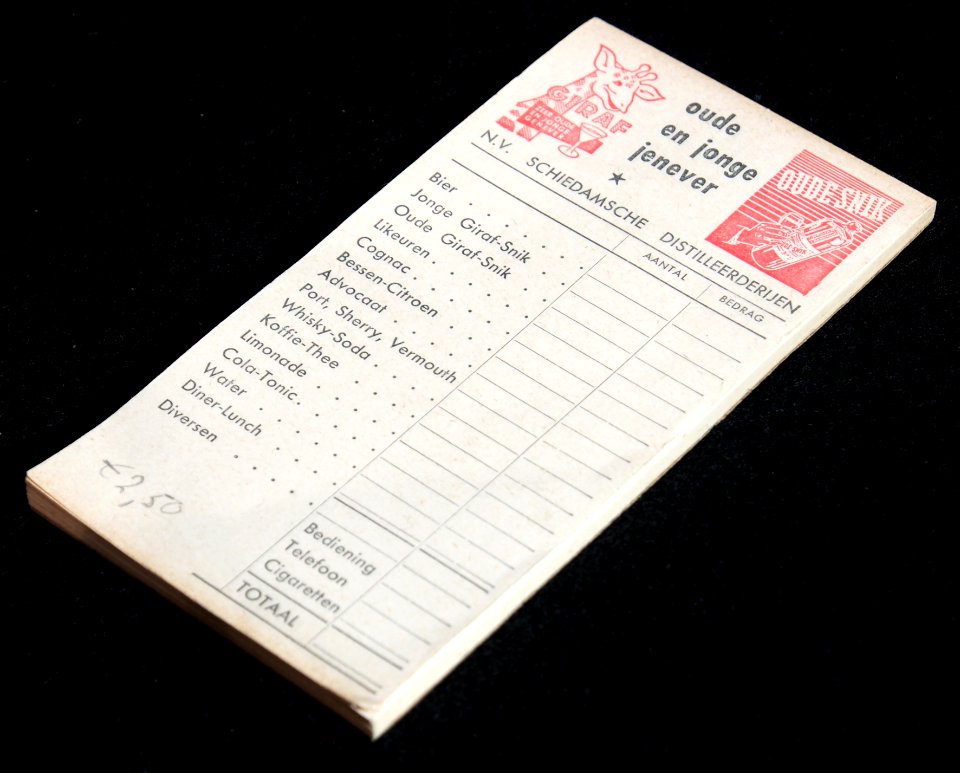 GIRAF
ZEER OUDE
EN JONGE
GENEVER
oude
en jonge
jenever
OUDE-SNIK
N.V. SCHIEDAMSCHE DISTILLEERDERIJEN
AANTAL
BEDRAG
Bier
Jonge Giraf-Snik
Oude Giraf-Snik
Likeuren
Cognac
Bessen-Citroen
Advocaat
Port, Sherry, Vermouth
Whisky-Soda
Koffie-Thee
Limonade
Cola-Tonic
Water
Diner-Lunch
Diversen
€2,50
Bediening
Telefoon
Cigaretten
TOTAAL